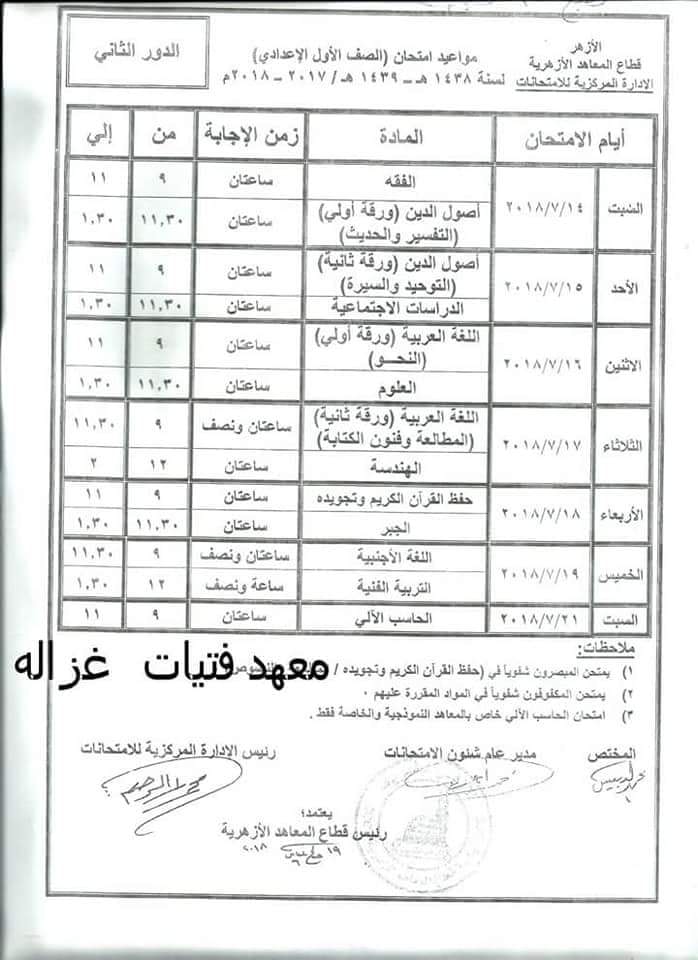 الأزهر
قطاع المعاهد الأزهرية
الإدارة المركزية للامتحانات
مواعيد امتحان (الصف الأول الإعدادي)
لسنة ١٤٣٨ هـ – ١٤٣٩ هـ / ٢٠١٧ – ٢٠١٨م
الدور الثاني
أيام الامتحان المادة زمن الإجابة من إلي
السبت ٢٠١٨/٧/١٤ الفقه ساعتان ٩ ١١
أصول الدين (ورقة أولي) (التفسير والحديث) ساعتان ١١,٣٠ ١,٣٠
الأحد ٢٠١٨/٧/١٥ أصول الدين (ورقة ثانية) (التوحيد والسيرة) ساعتان ٩ ١١
الدراسات الاجتماعية ساعتان ١١,٣٠ ١,٣٠
الاثنين ٢٠١٨/٧/١٦ اللغة العربية (ورقة أولي) (النحـو) ساعتان ٩ ١١
العلوم ساعتان ١١,٣٠ ١,٣٠
الثلاثاء ٢٠١٨/٧/١٧ اللغة العربية (ورقة ثانية) (المطالعة وفنون الكتابة) ساعتان ونصف ٩ ١١,٣٠
الهندسة ساعتان ١٢ ٢
الأربعاء ٢٠١٨/٧/١٨ حفظ القرآن الكريم وتجويده ساعتان ٩ ١١
الجبر ساعتان ١١,٣٠ ١,٣٠
الخميس ٢٠١٨/٧/١٩ اللغة الأجنبية ساعتان ونصف ٩ ١١,٣٠
التربية الفنية ساعة ونصف ١٢ ١,٣٠
السبت ٢٠١٨/٧/٢١ الحاسب الآلي ساعتان ٩ ١١
ملاحظات:
معهد فتيات غزاله
١) يمتحن المبصرون شفوياً في (حفظ القرآن الكريم وتجويده /
٢) يمتحن المكفوفون شفوياً في المواد المقررة عليهم .
٣) امتحان الحاسب الآلي خاص بالمعاهد النموذجية والخاصة فقط .
المختص مدير عام شئون الامتحانات رئيس الإدارة المركزية للامتحانات
يعتمد؛
رئيس قطاع المعاهد الأزهرية